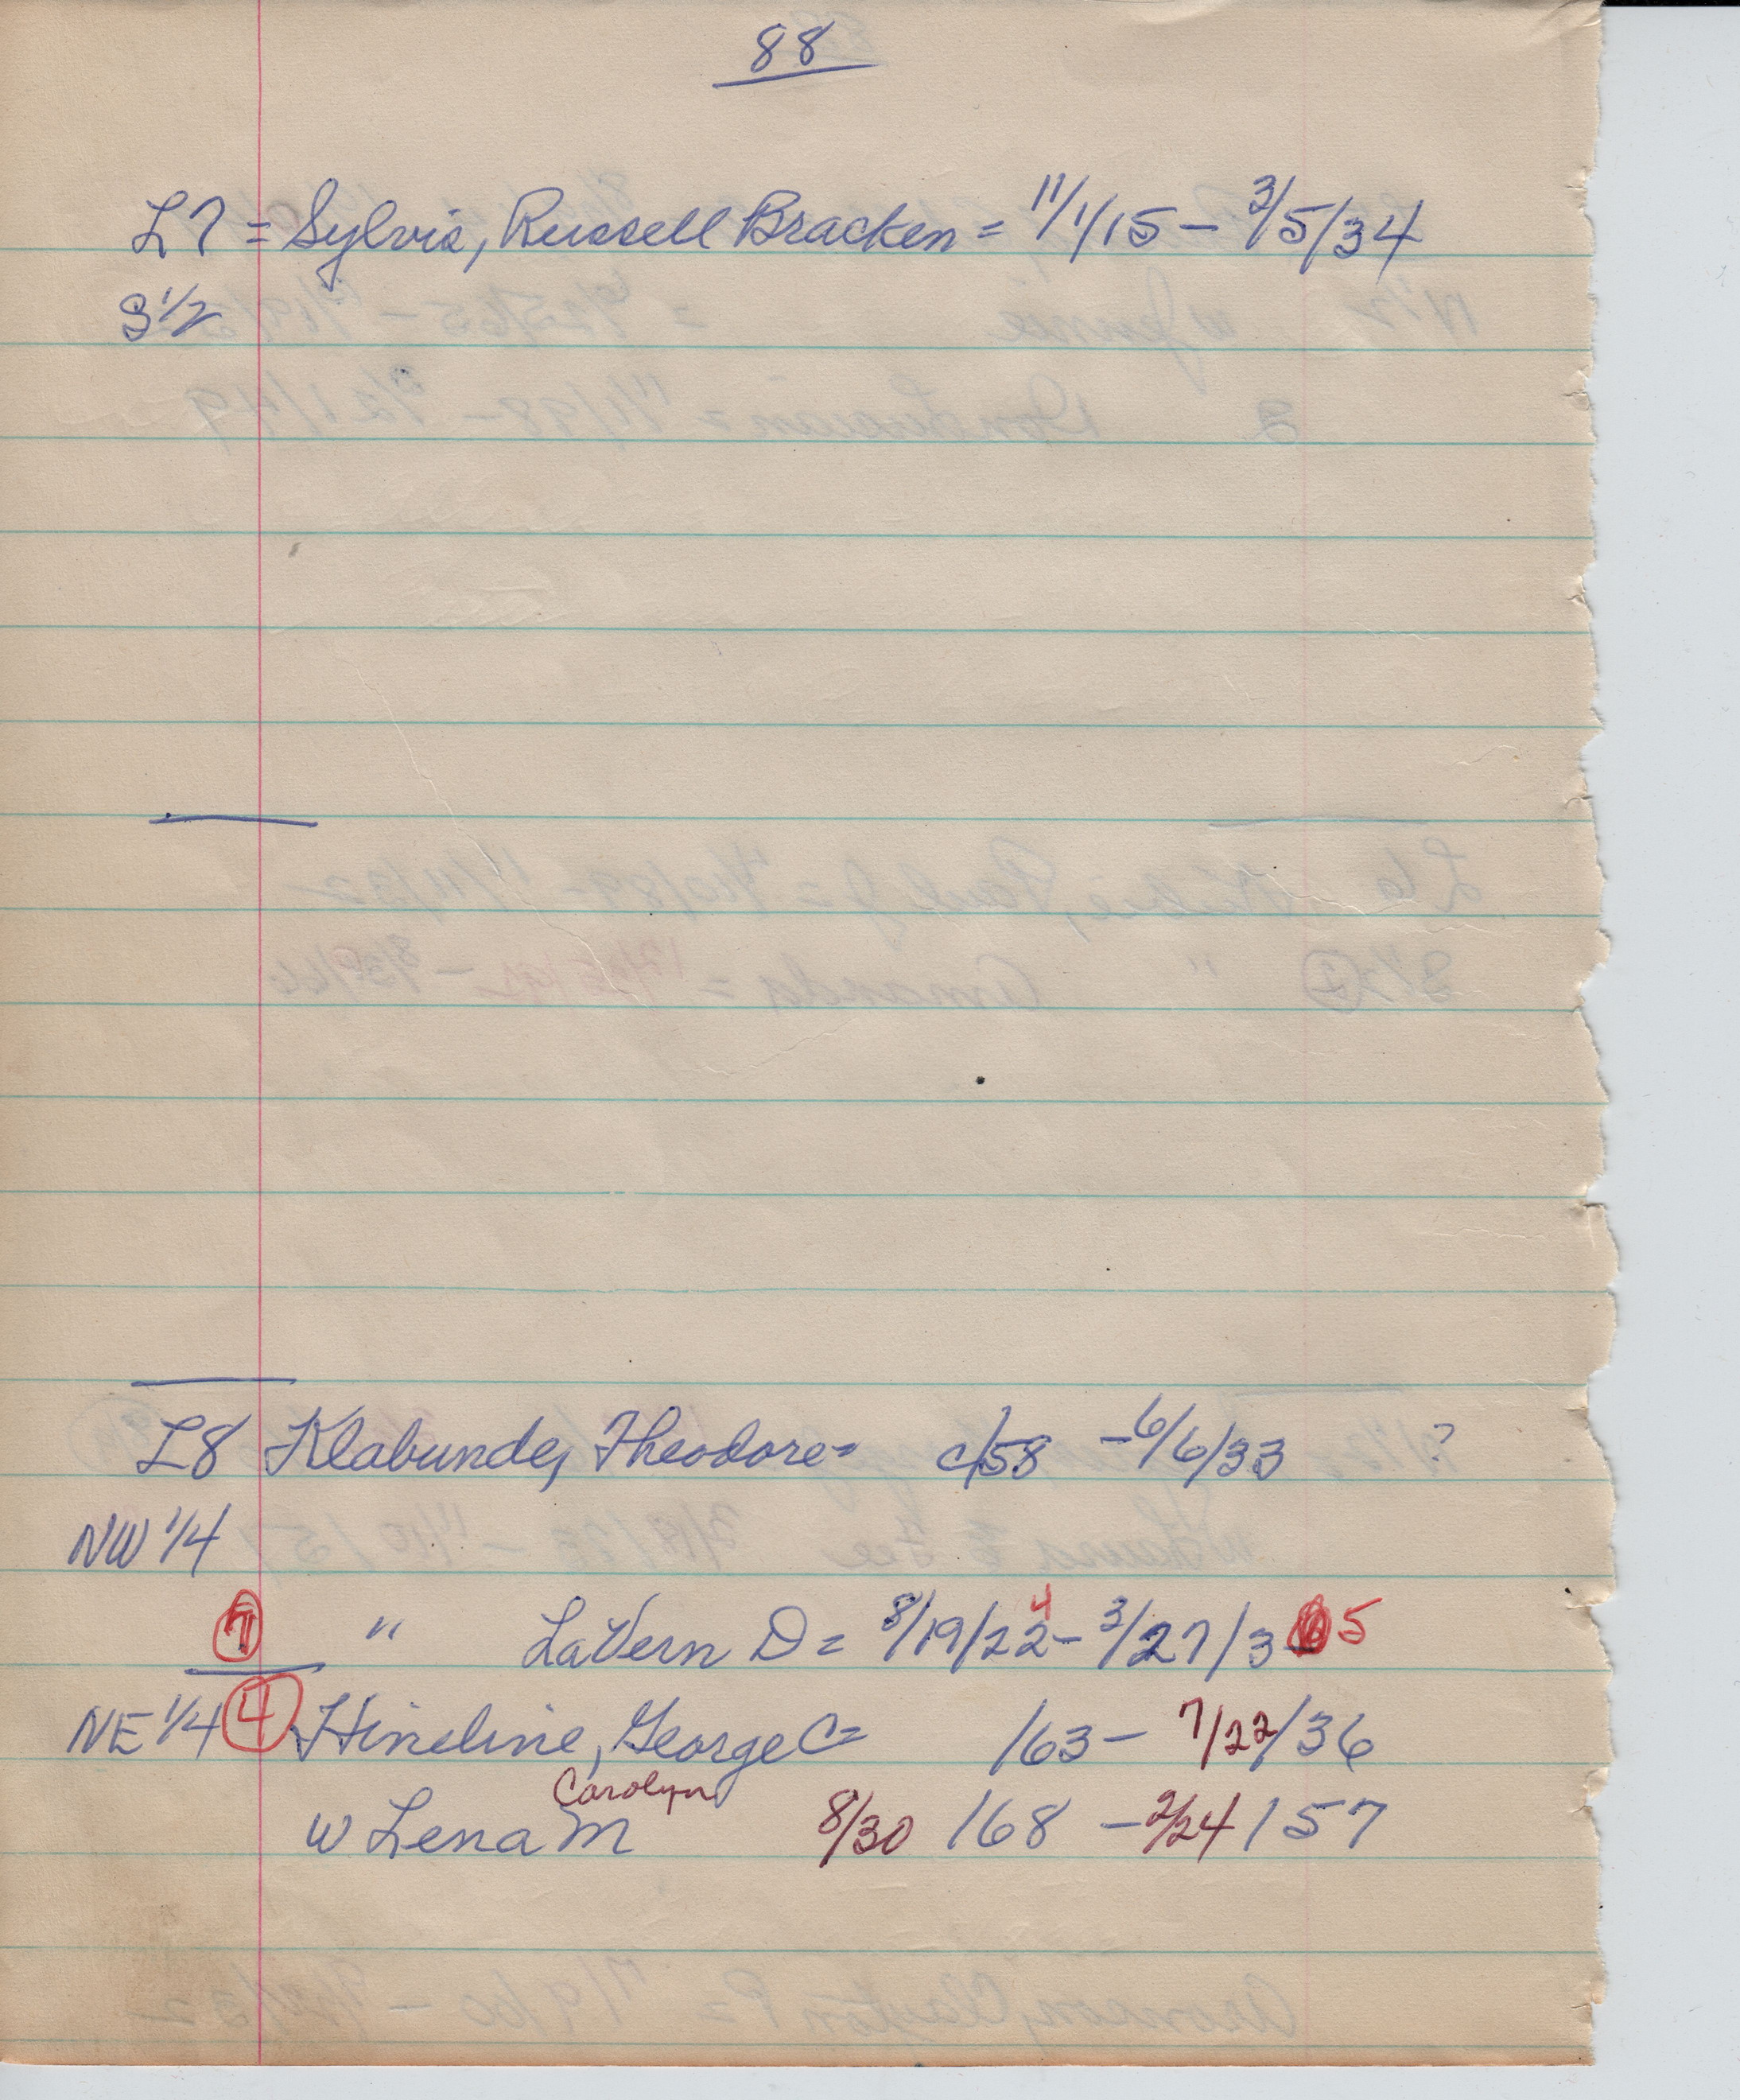 88
L7 = Sylvis, Russell Bracken = 11/1/15 - 3/5/34
S 1/2
L8 Klabunde, Theodore = c/58 - 6/6/33 ?
NW 1/4
7 " LaVern D = 8/19/22 4 - 3/27/3 5
NE 1/4 4 Hineline, George C = /63 - 7/22/36
Carolyn
w Lena M 8/30 /68 - 2/24/57